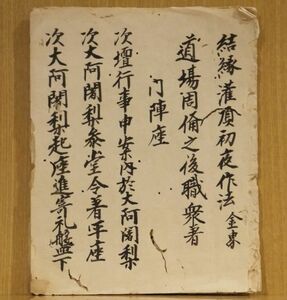 結縁灌頂初夜作法 金東
道場周備之後職衆著
門陣座
次壇行事申案内於大阿闍梨
次大阿闍梨参堂令著平座
次大阿闍梨起座進寄礼盤下